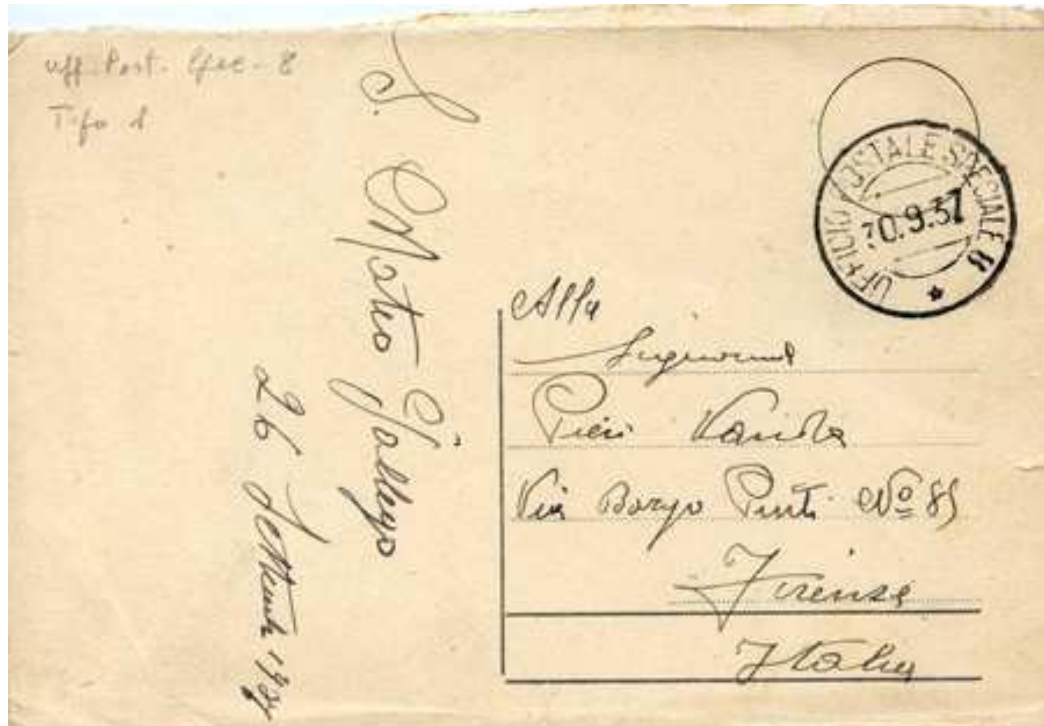 Uff. Post. Spec. 8
Tipo 1
S. Mateo Gallego
26 Settembre 1937
UFFICIO POSTALE SPECIALE 8
30.9.37
Alla
Signorina
Pieri Vanda
Via Borgo Pinti Nº 85
Firenze
Italia